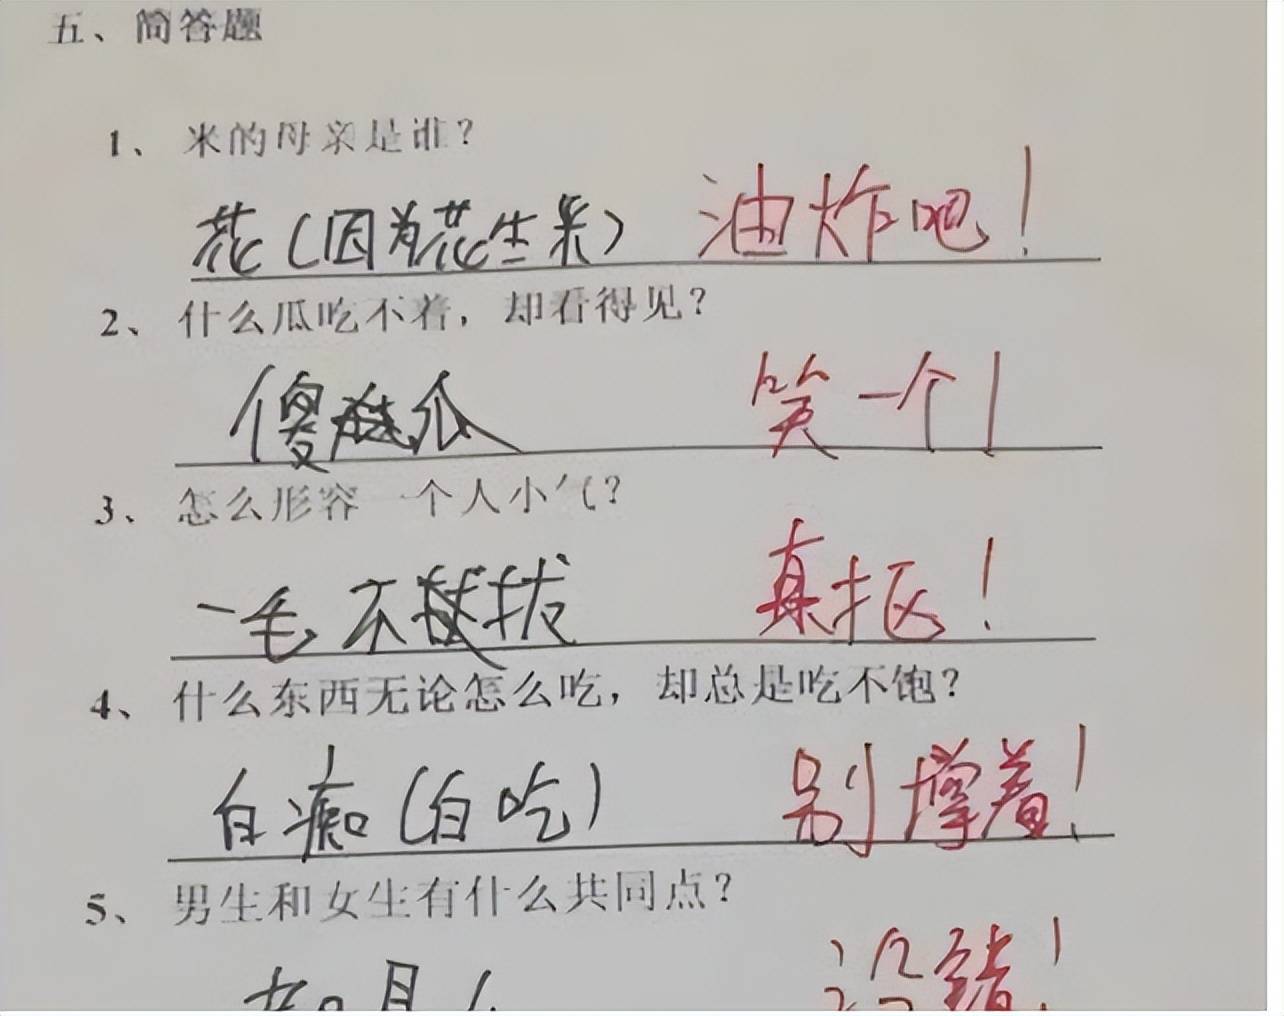 五、简答题
1、米的母亲是谁？
花（因为花生米） 油炸吧！
2、什么瓜吃不着，却看得见？
傻瓜 笑一个！
3、怎么形容一个人小气？
一毛不拔 真抠！
4、什么东西无论怎么吃，却总是吃不饱？
白痴（白吃） 别撑着！
5、男生和女生有什么共同点？
都是人 没错！